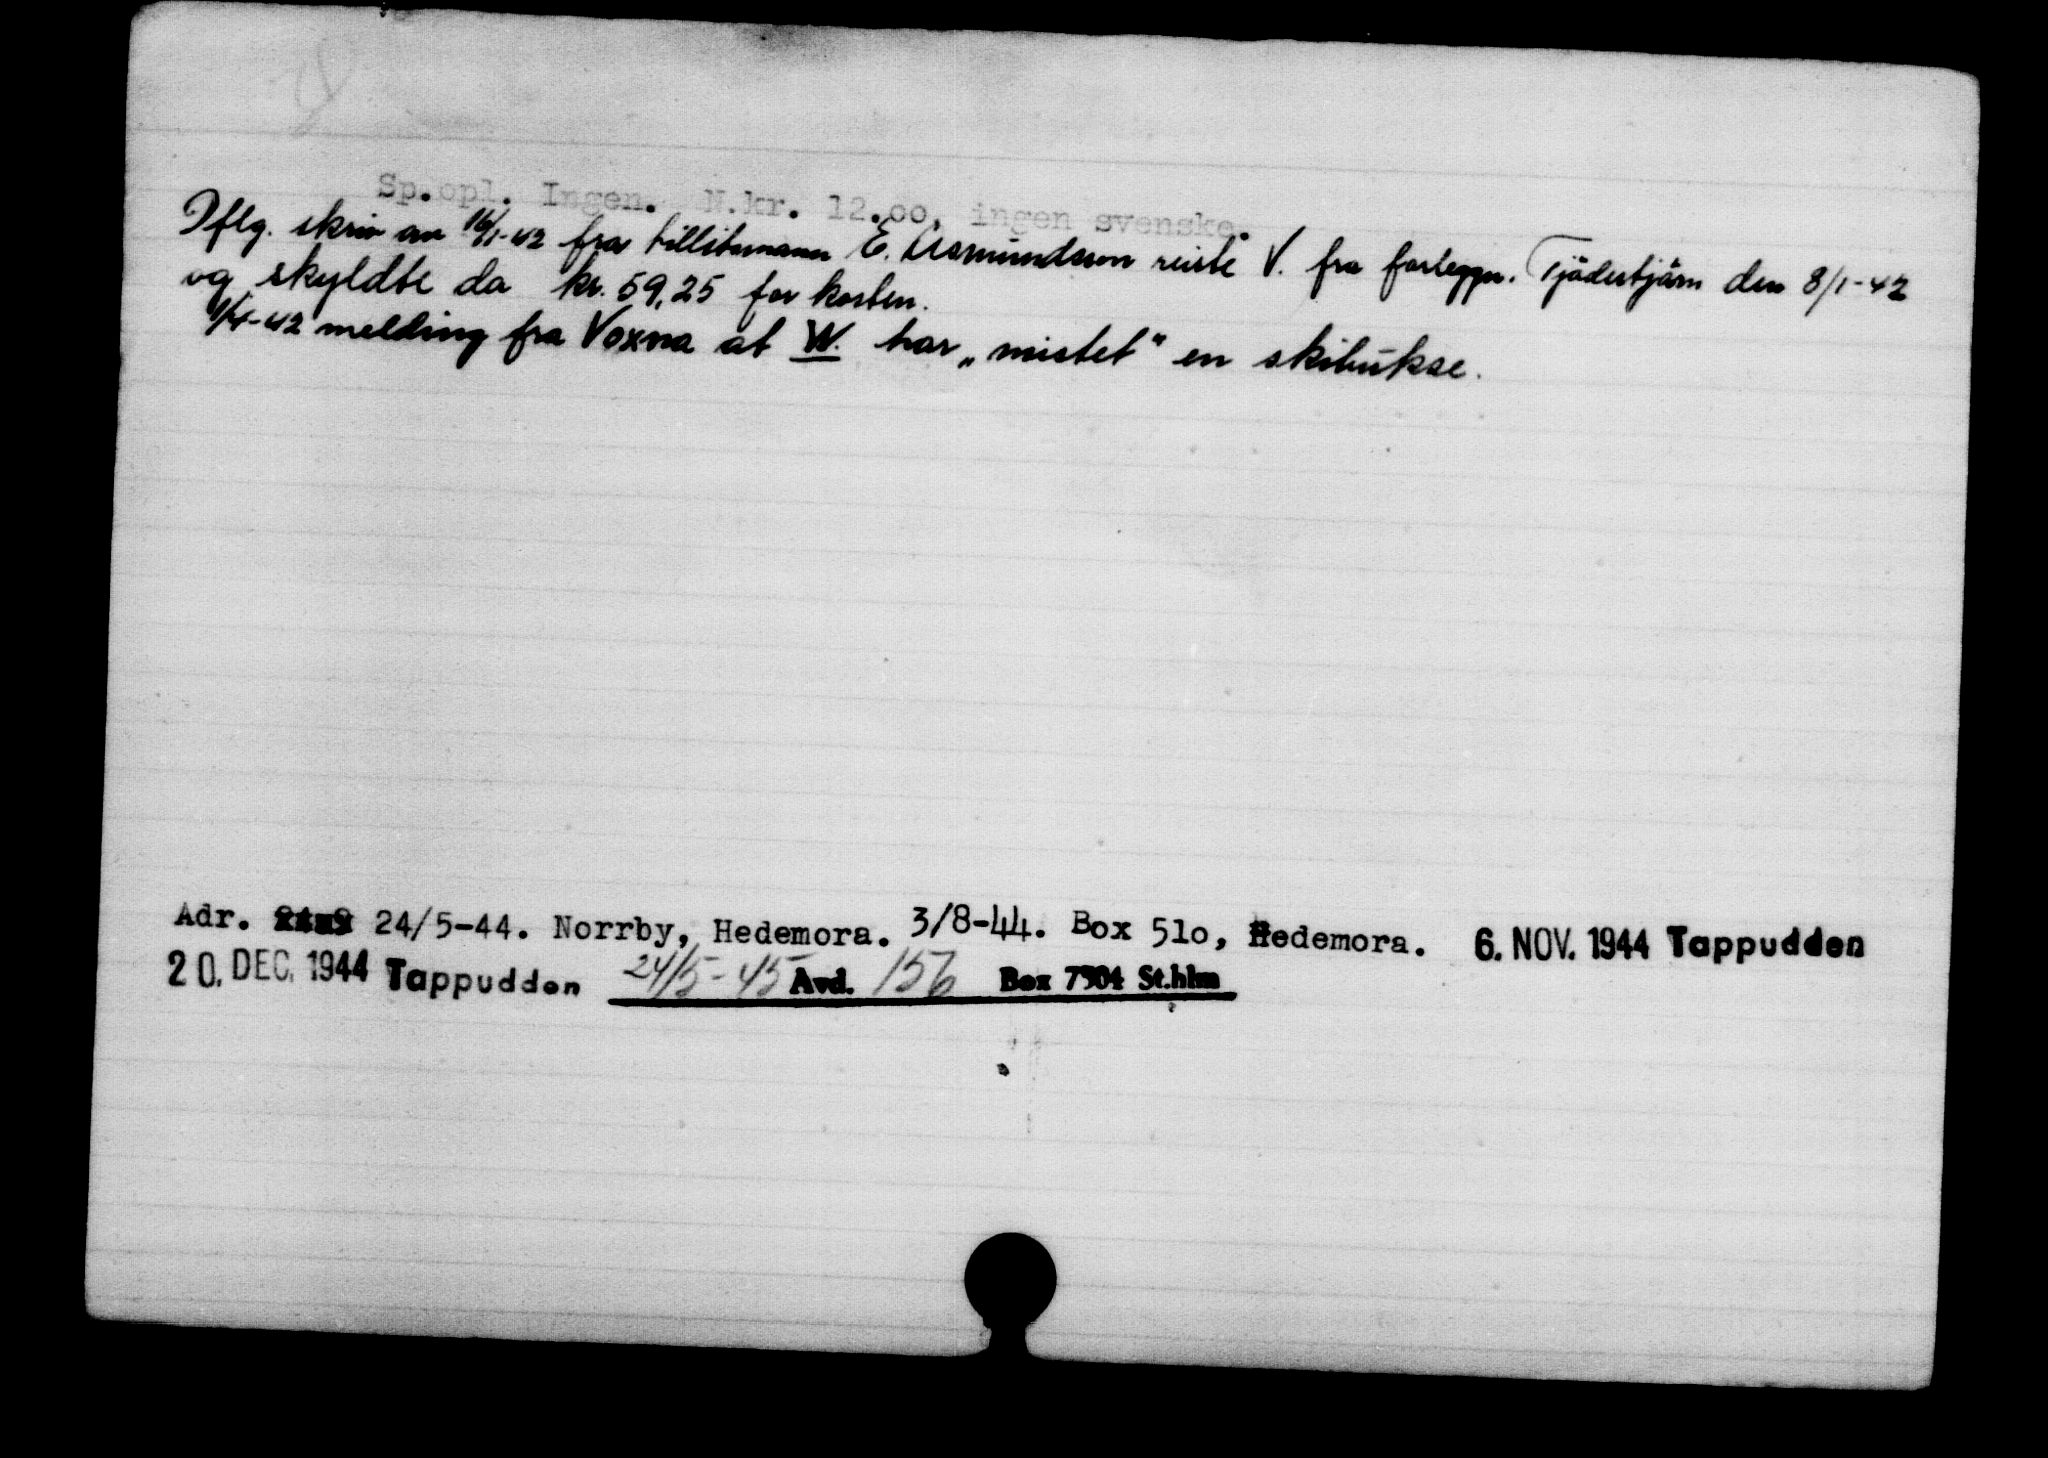 Sp.opl. Ingen. N.kr. 12.oo, ingen svenske.
Iflg. skriv av 16/1-42 fra tillitsmann E. Asmundsson reiste V. fra forleggn. Tjäderstjärn den 8/1-42
og skyldte da kr. 59,25 for kosten.
1/4-42 melding fra Voxna at W. har „mistet" en skibukse.
Adr. 24/5-44. Norrby, Hedemora. 3/8-44. Box 51o, Hedemora. 6. NOV. 1944 Tappudden
20. DEC. 1944 Tappudden 24/5-45 Avd. 156 Box 7304 St.hlm